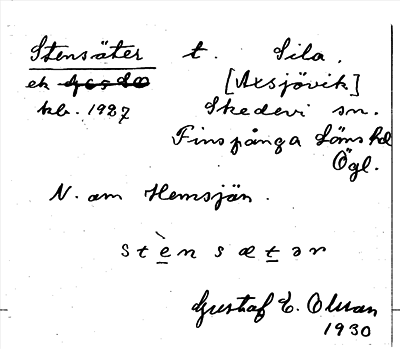 Stensäter t. Sila.
ek [Axsjövik]
kb. 1927 Skedevi sn.
Finspånga Läns hd
Ögl.
N. om Hemsjön.
s t è n s æ t ə r
Gustaf E. Olsson
1930